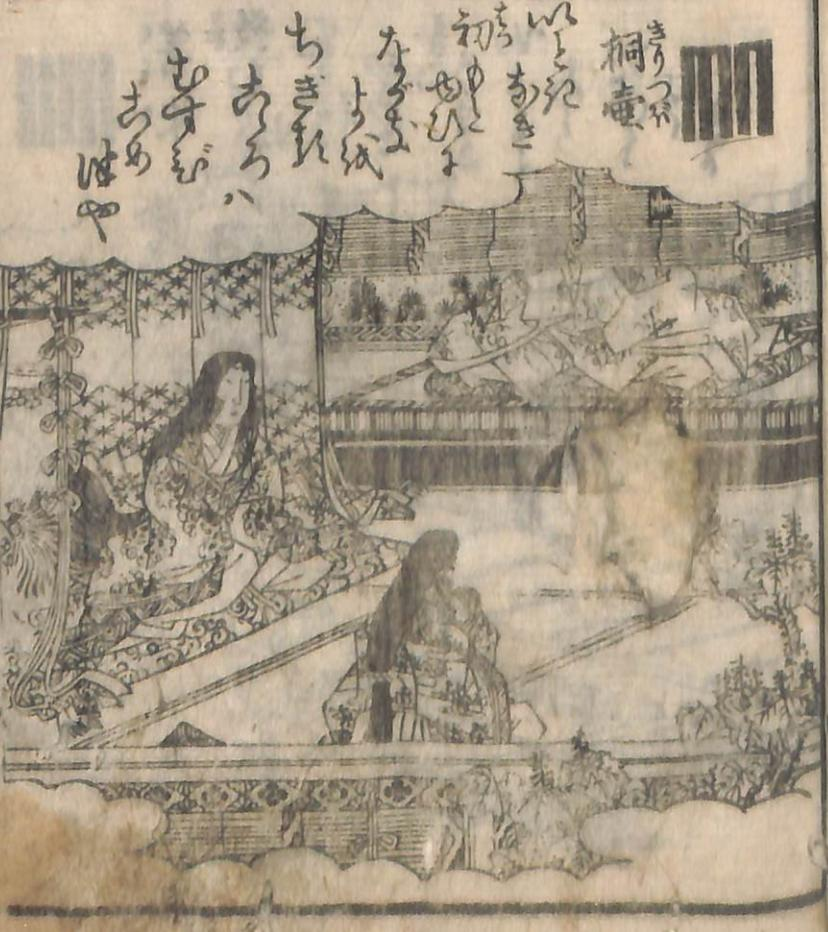 きりつぼ
桐壷
いとき
なき
初もと
ゆひに
ながき
よを
ちぎる
こゝろハ
むすび
こめ
つや